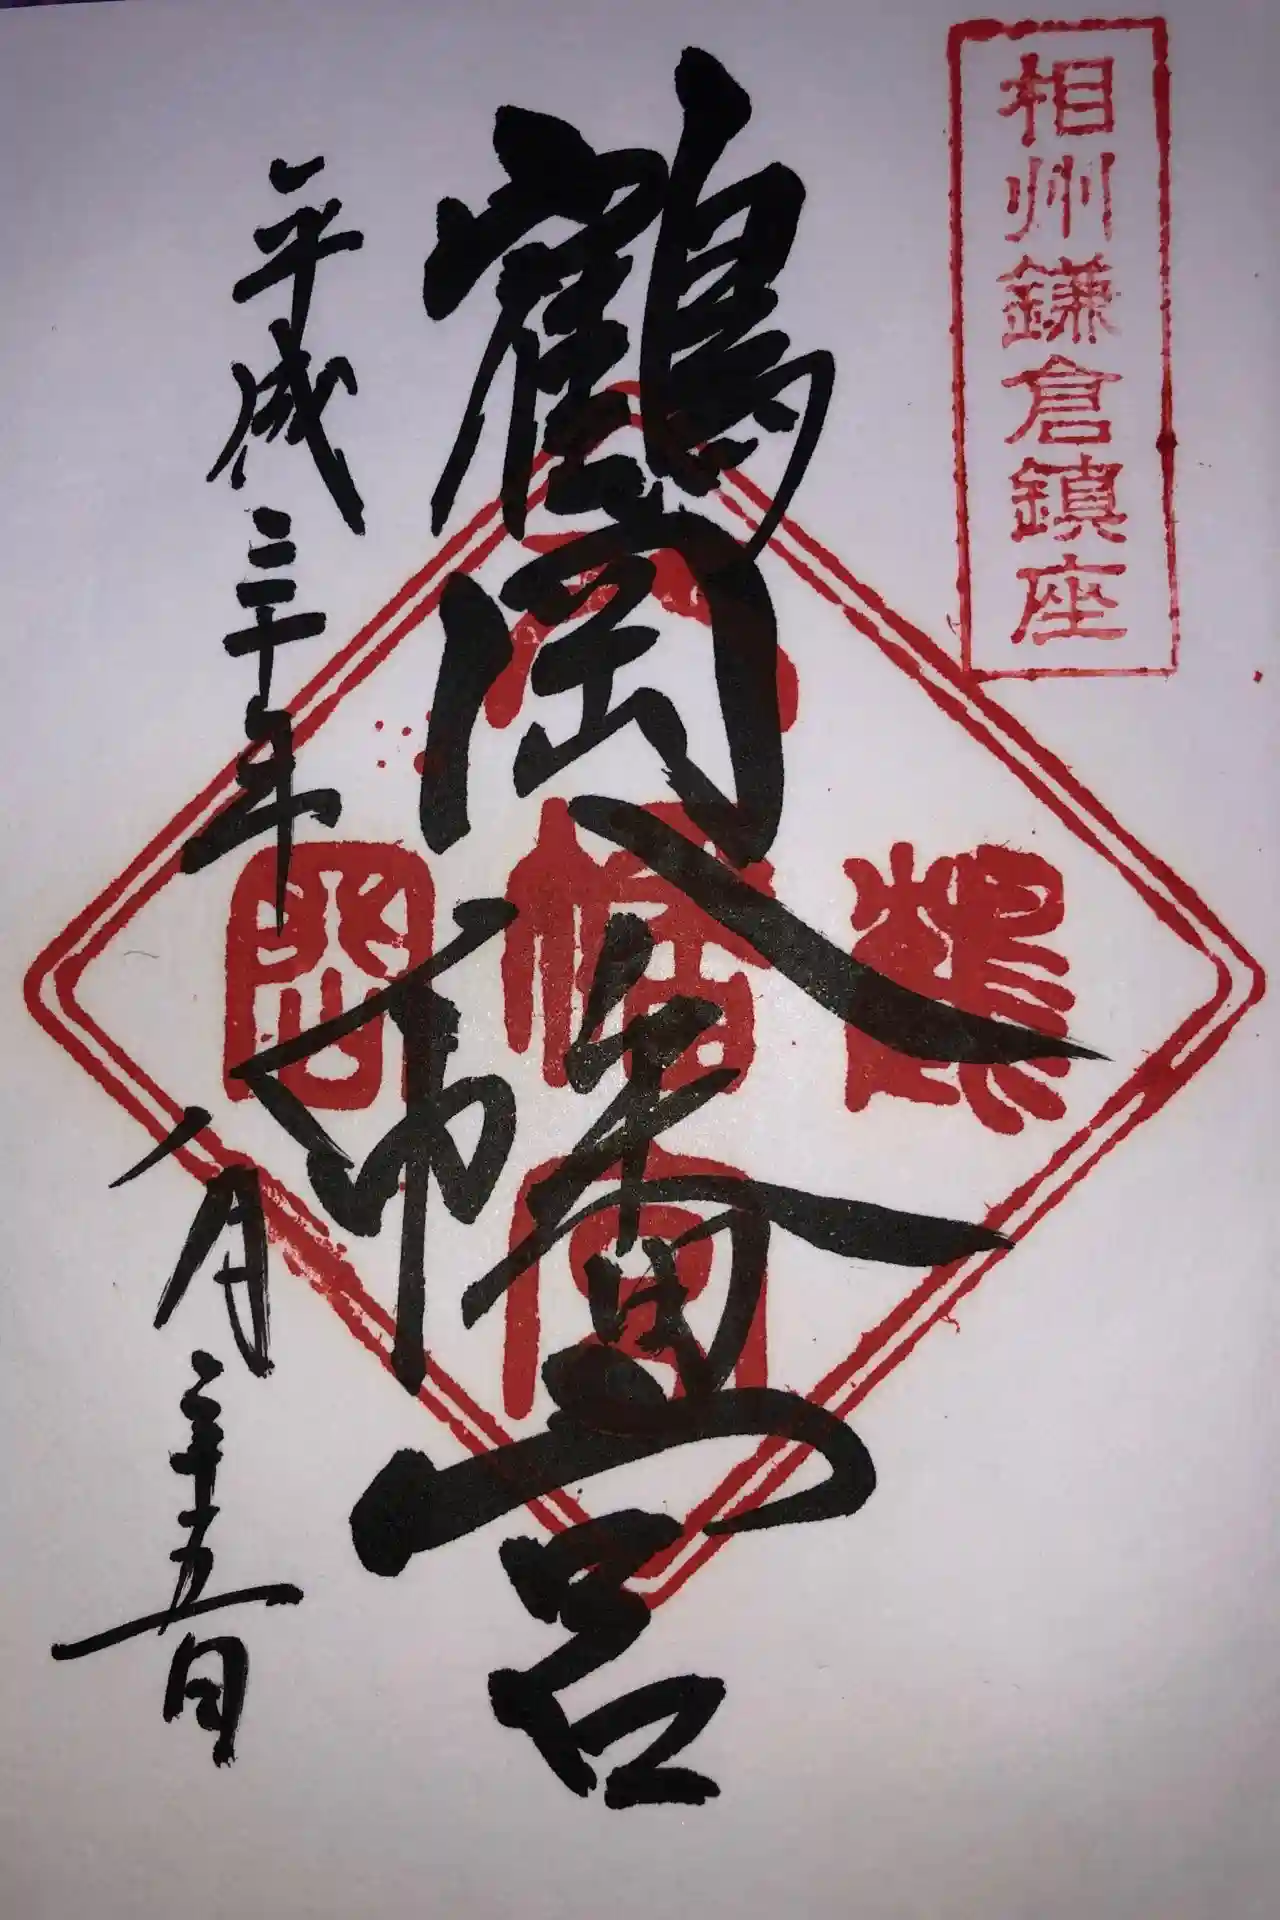 相州鎌倉鎮座
鶴岡八幡宮
鶴
八幡宮
岡
平成三十年
八月二十五日